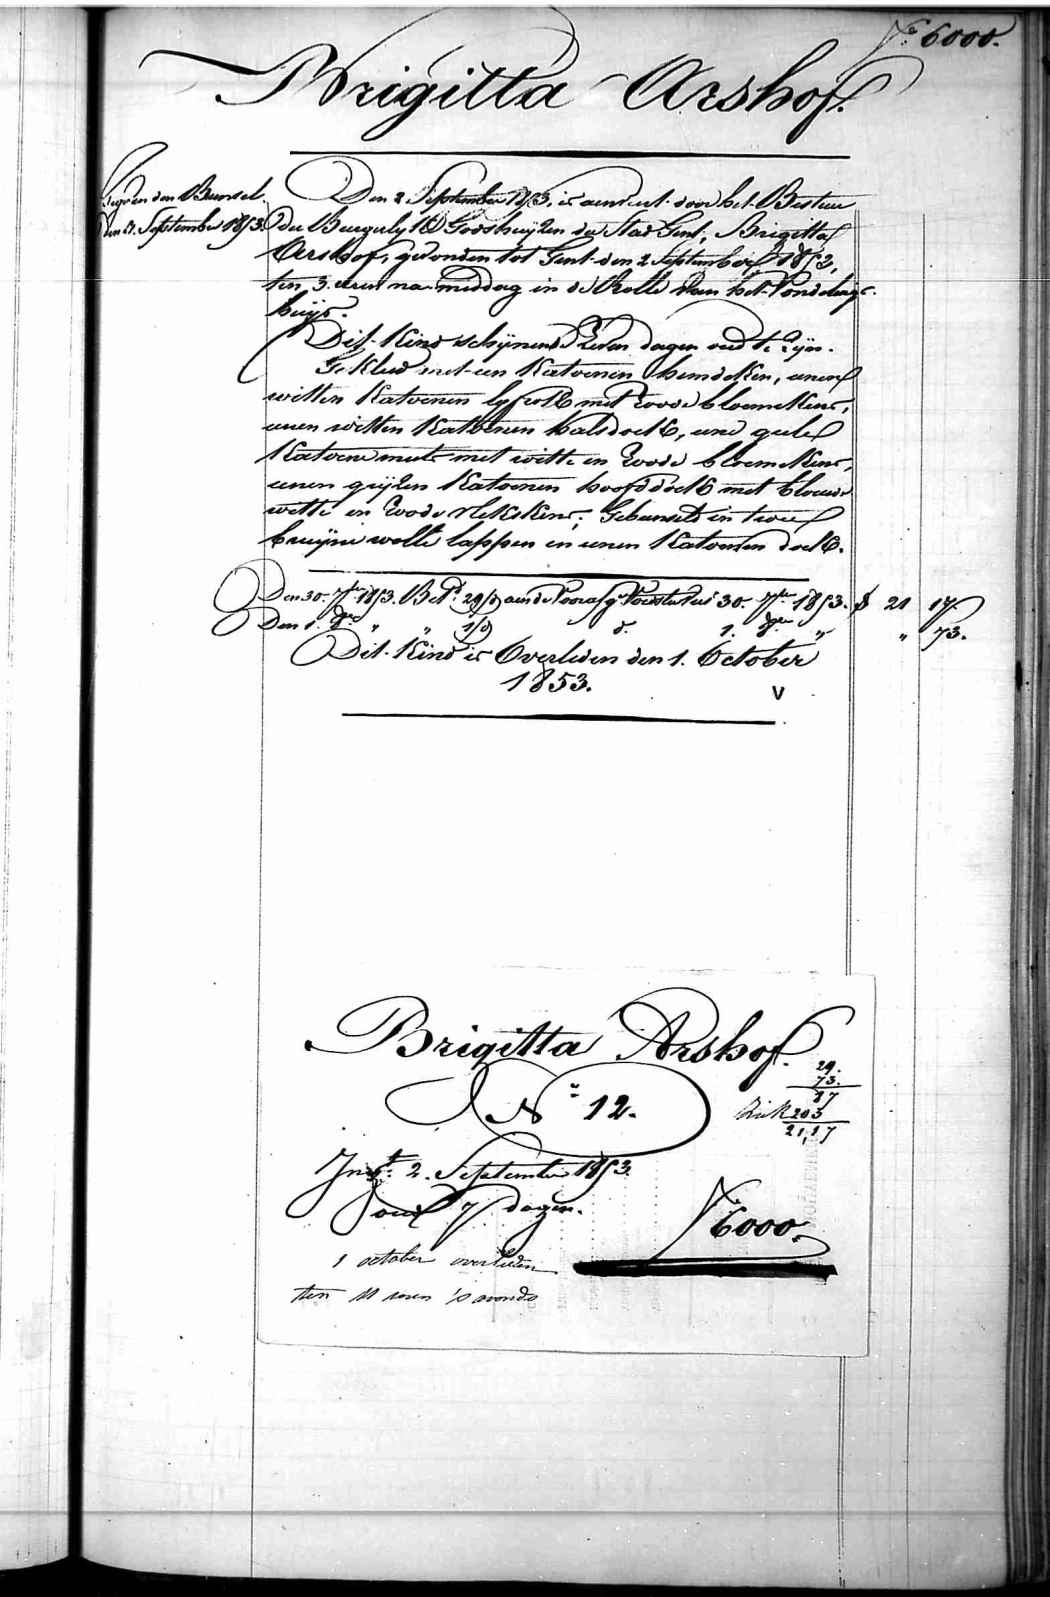 N.° 6000.
Brigitta Arshof.
den Bunsel.
den 2. September 1853.
Den 2 September 1853, is aenveert door het Bestuer
der Burgerlijke Godshuijzen der Stad Gent, Brigitta
Arshof, gevonden tot Gent den 2 September 1853,
ten 3. uren na middag in de Rolle van het Vondelings-
huijs.
Dit Kind schijnende Zeven dagen oud te Zijn.
Gekleed met een Katoenen hemdeken, eenen
witten Katoenen lijfrok met roode bloemekens,
eenen witten Katoenen halsdoek, eene geele
Katoene muts met witte en Roode bloemekens,
eenen grijzen Katoenen hoofddoek met blauwe
witte en Roode vlekskens; Gebunseld in twee
bruijne wolle lappen en eenen Katoenen doek.
Den 30. 7ber 1853. Betd 29/d aen de Voorzg Voesterkns 30. 7ber 1853. 21 17
Den 1. 8ber " " 1/d d. 1. 8ber " " 73.
Dit Kind is Overleden den 1. October
1853.
V
Brigitta Arshof.
N° 12.
29.
73.
87
Ziek 203
21,17
Ingt. 2. September 1853.
oud 7 dagen.
N° 6000.
1 october overleden
ten 11 uren 's avonds